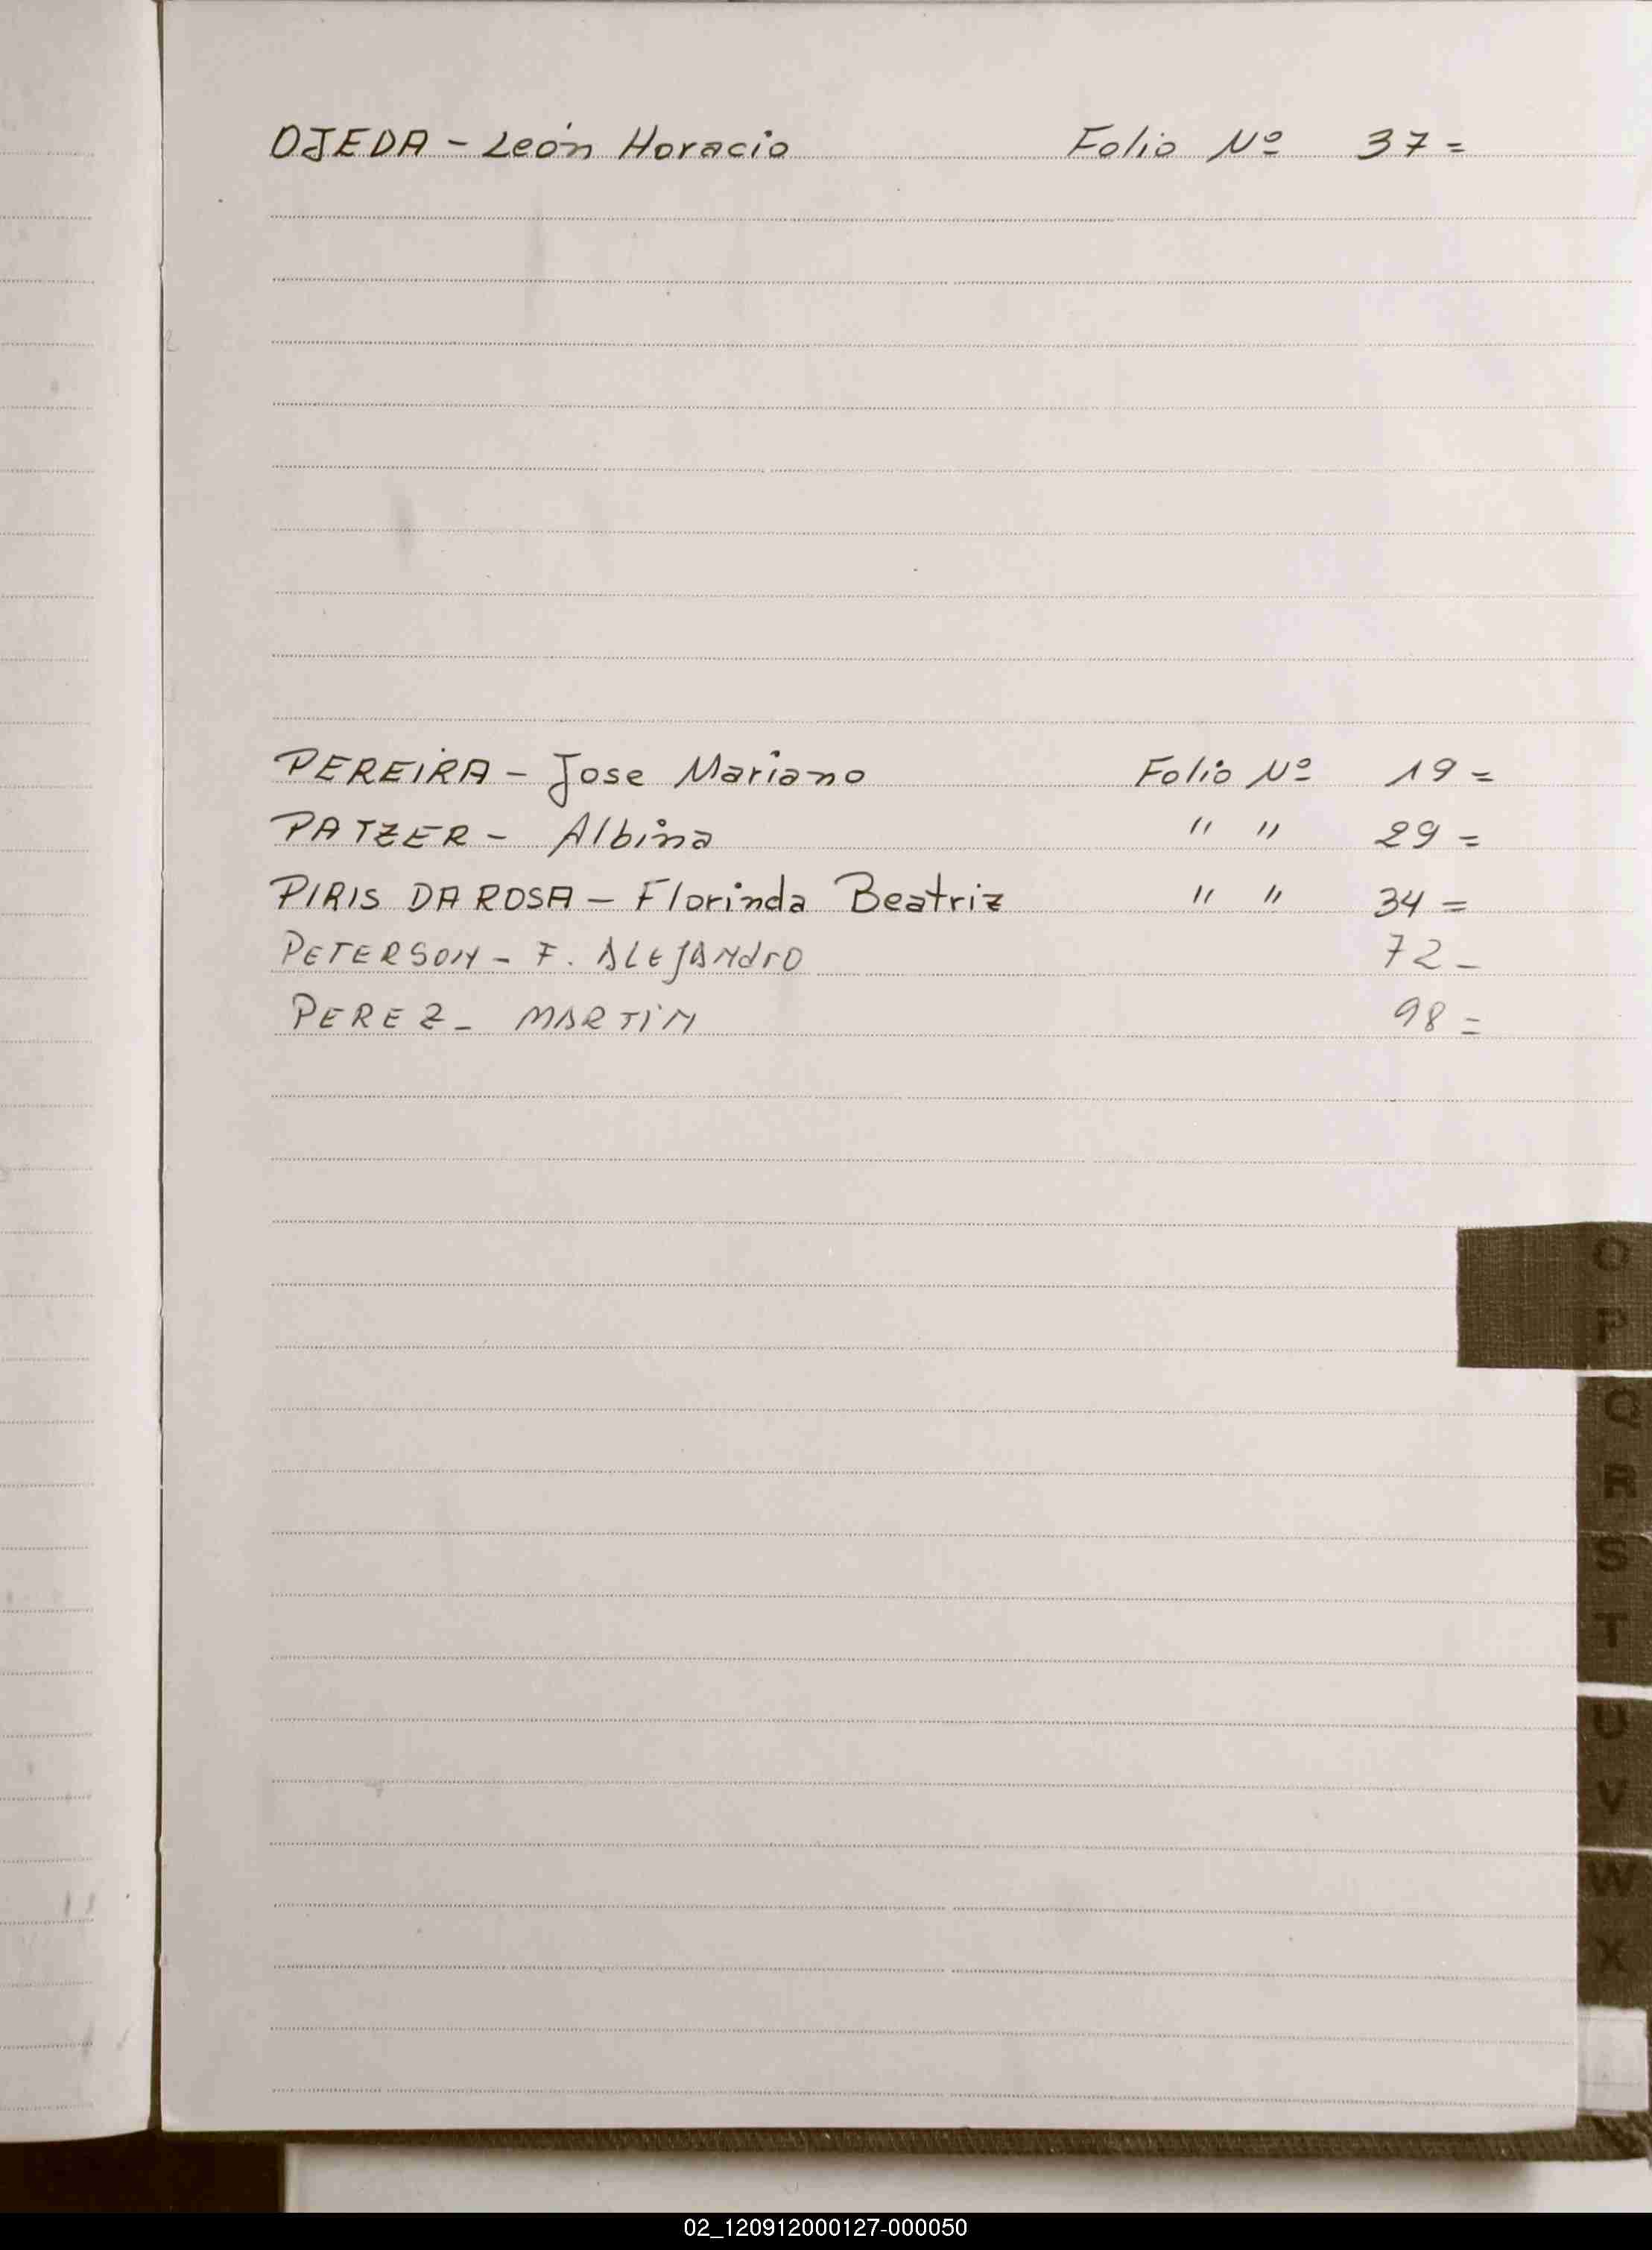 OJEDA - León Horacio Folio Nº 37=
PEREIRA - Jose Mariano Folio Nº 19=
PATZER - Albina " " 29=
PIRIS DA ROSA - Florinda Beatriz " " 34=
PETERSON - F. ALEJANdrO 72-
PEREZ - MARTIN 98=
O
P
Q
R
S
T
U
V
W
X
02_120912000127-000050